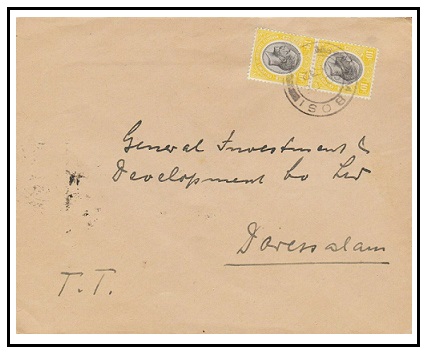 General Investment &
Development Co Ltd
Daressalam
T.T.